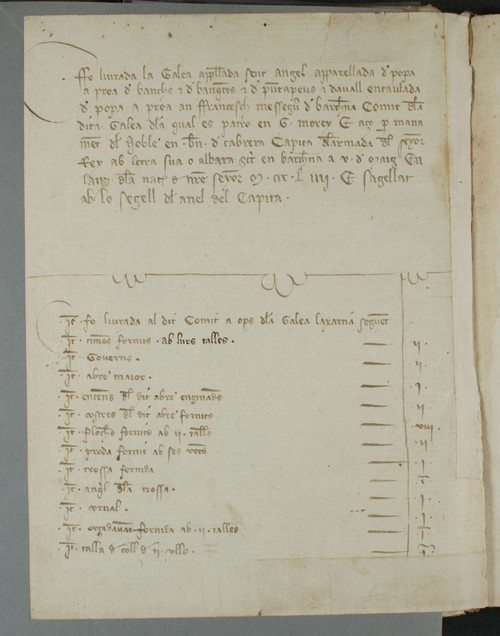 Ffo liurada la Galea apellada sent angel apparellada d popa
a proa d banchs e d banquets e d puntapeus e dauall encaulada
d popa a proa an ffrancesch messegue d barchna Comit dla
dita Galea dla qual es patro en G. morey E aço per mana
ment dl Noble en bn. d cabrera Capita dlarmada dl senyor
Rey ab letra sua o albara scrit en barchna a v. d maig En
lany dla nat d nre senyor M. ccc. L iiii. E sagellat
ab lo segell dl anel del Capita.
It. fo liurada al dit Comit a ops dla Galea la xarcia seguent
It. timons fornits. ab lurs talles. ii.
It. Gouerns. ii.
It. abre maior. i.
It. entenes dl dit abre enginades ii.
It. costeres dl dit abre fornits viii.
It. fornits ab ii. talles ii.
It. proda fornit ab ses i.
It. trossa fornida i.
It. anql dla trossa. i.
It. i.
It. fornida ab. ii. talles i.
It. talla d coll d ii. ulls. i.